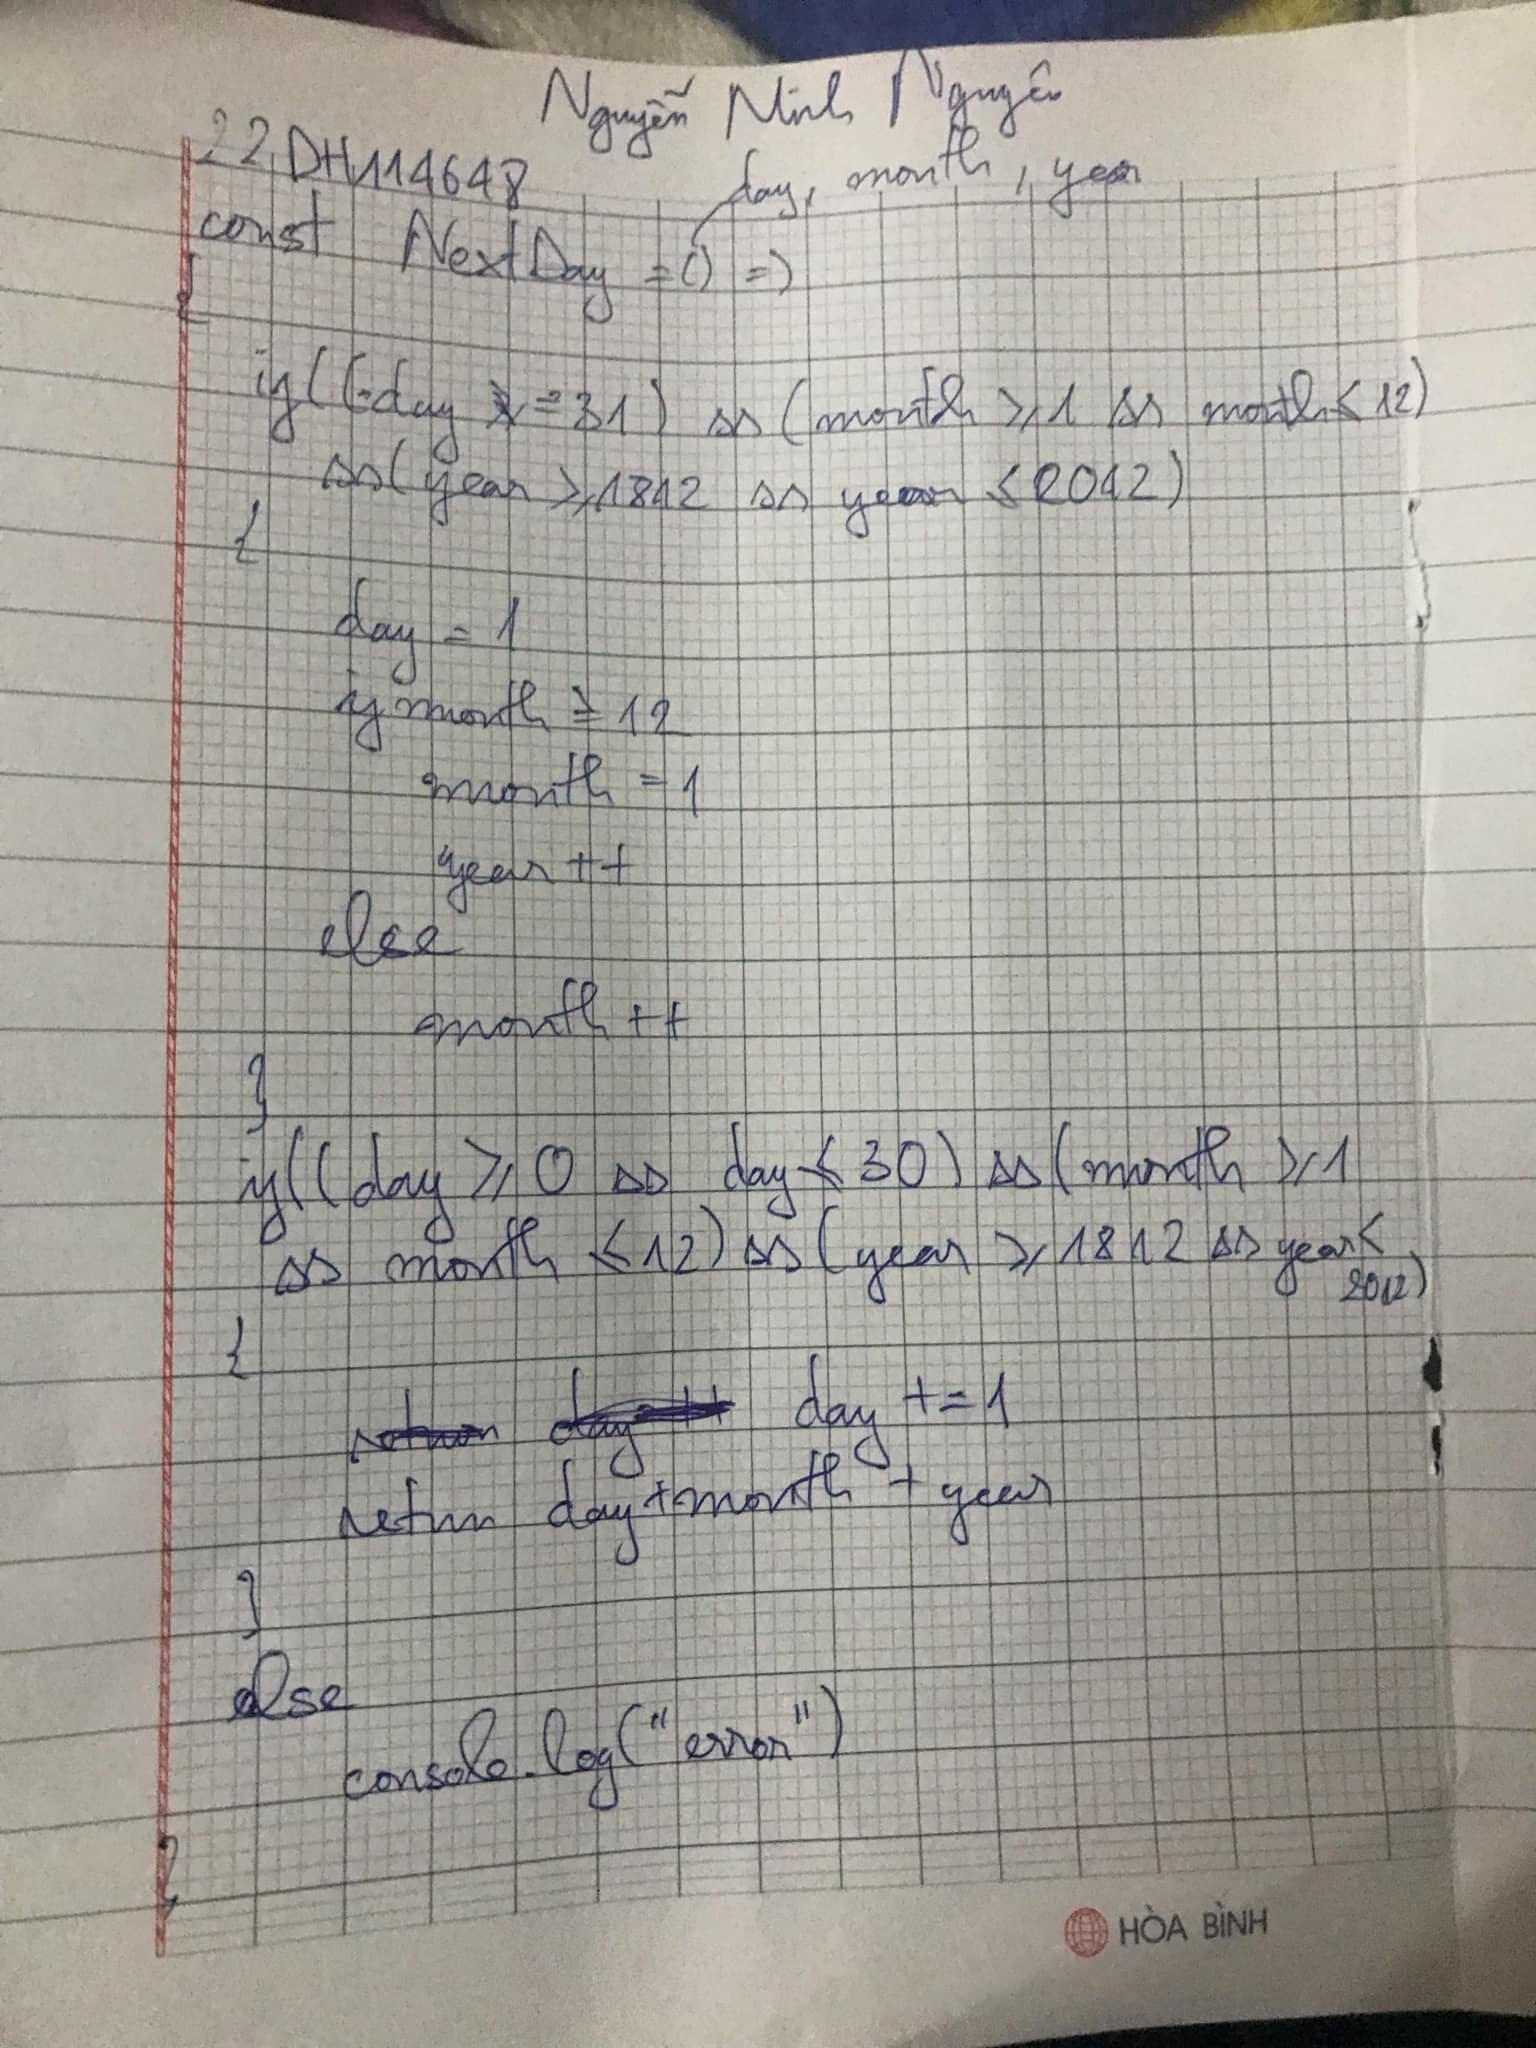 Nguyễn Minh Nguyên
22DH114648
day, month, year
const NextDay = () =>
{
if((day == 31) && (month ≥ 1 && month ≤ 12)
&& (year ≥ 1812 && year ≤ 2012)
{
day = 1
if month ≥ 12
month = 1
year ++
else
month ++
}
if((day ≥ 0 && day ≤ 30) && (month ≥ 1
&& month ≤ 12) && (year ≥ 1812 && year ≤
2012)
{
day += 1
return day + month + year
}
else
console.log("error")
}
HÒA BÌNH